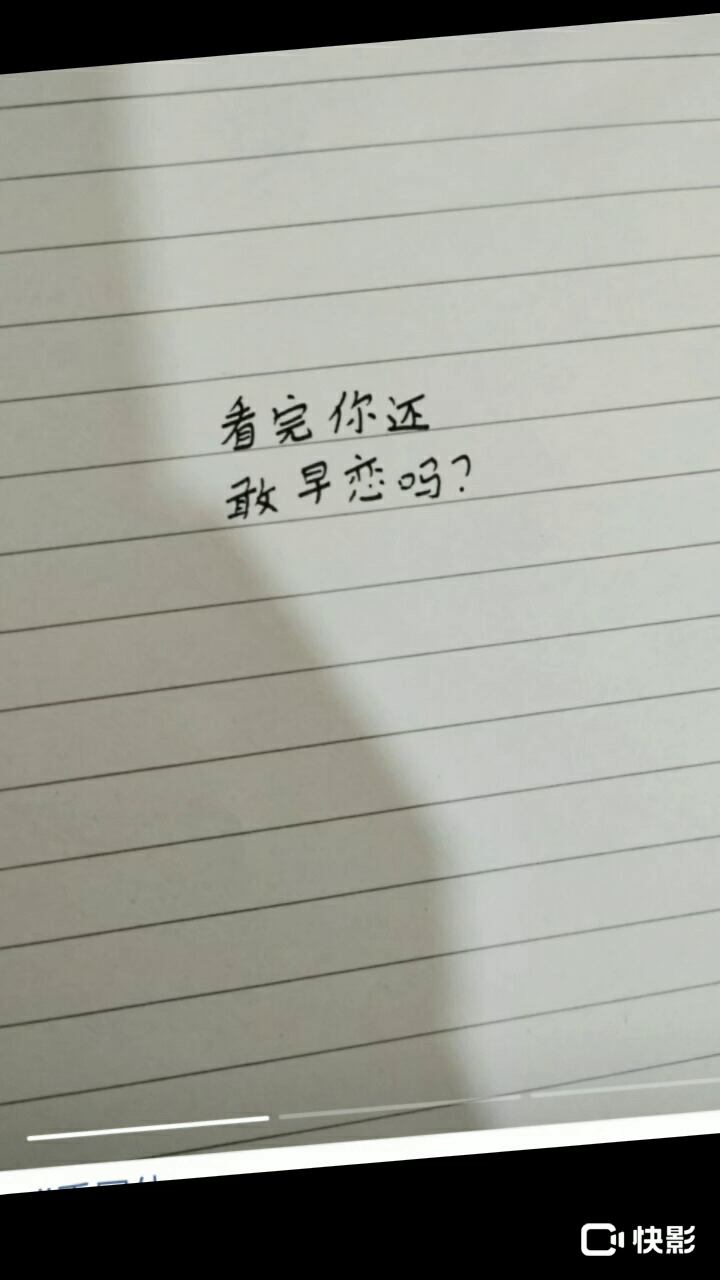 看完你还
敢早恋吗?
快影